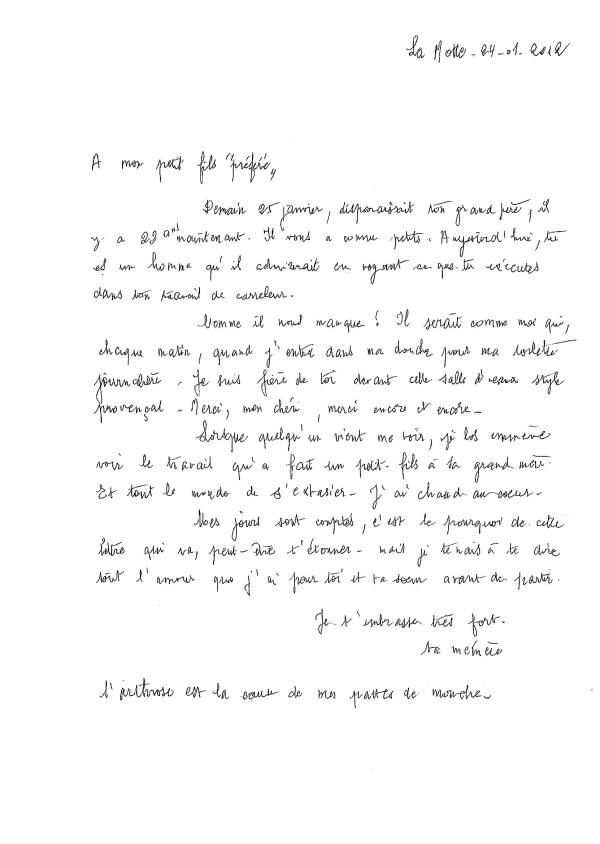 La Motte - 24-01-2012
A mon petit fils "préféré",
Demain 25 janvier, disparaissait ton grand père, il
y a 22 ans maintenant. Il vous a connu petits. Aujourd'hui, tu
es un homme qu'il admirerait en voyant ce que tu exécutes
dans ton travail de carreleur.
Comme il nous manque ! Il serait comme moi qui,
chaque matin, quand j'entre dans ma douche pour ma toilette
journalière - Je suis fière de toi devant cette salle d'eaux style
provençal - Merci, mon chéri, merci encore et encore -
Lorsque quelqu'un vient me voir, je les emmène
voir le travail qu'a fait un petit-fils à sa grand mère.
Et tout le monde de s'extasier - J'ai chaud au coeur -
Mes jours sont comptés, c'est le pourquoi de cette
lettre qui va, peut-être t'étonner - mais je tenais à te dire
tout l'amour que j'ai pour toi et ta soeur avant de partir.
Je t'embrasse très fort.
ta mémère
L'arthrose est la cause de mes pattes de mouche -